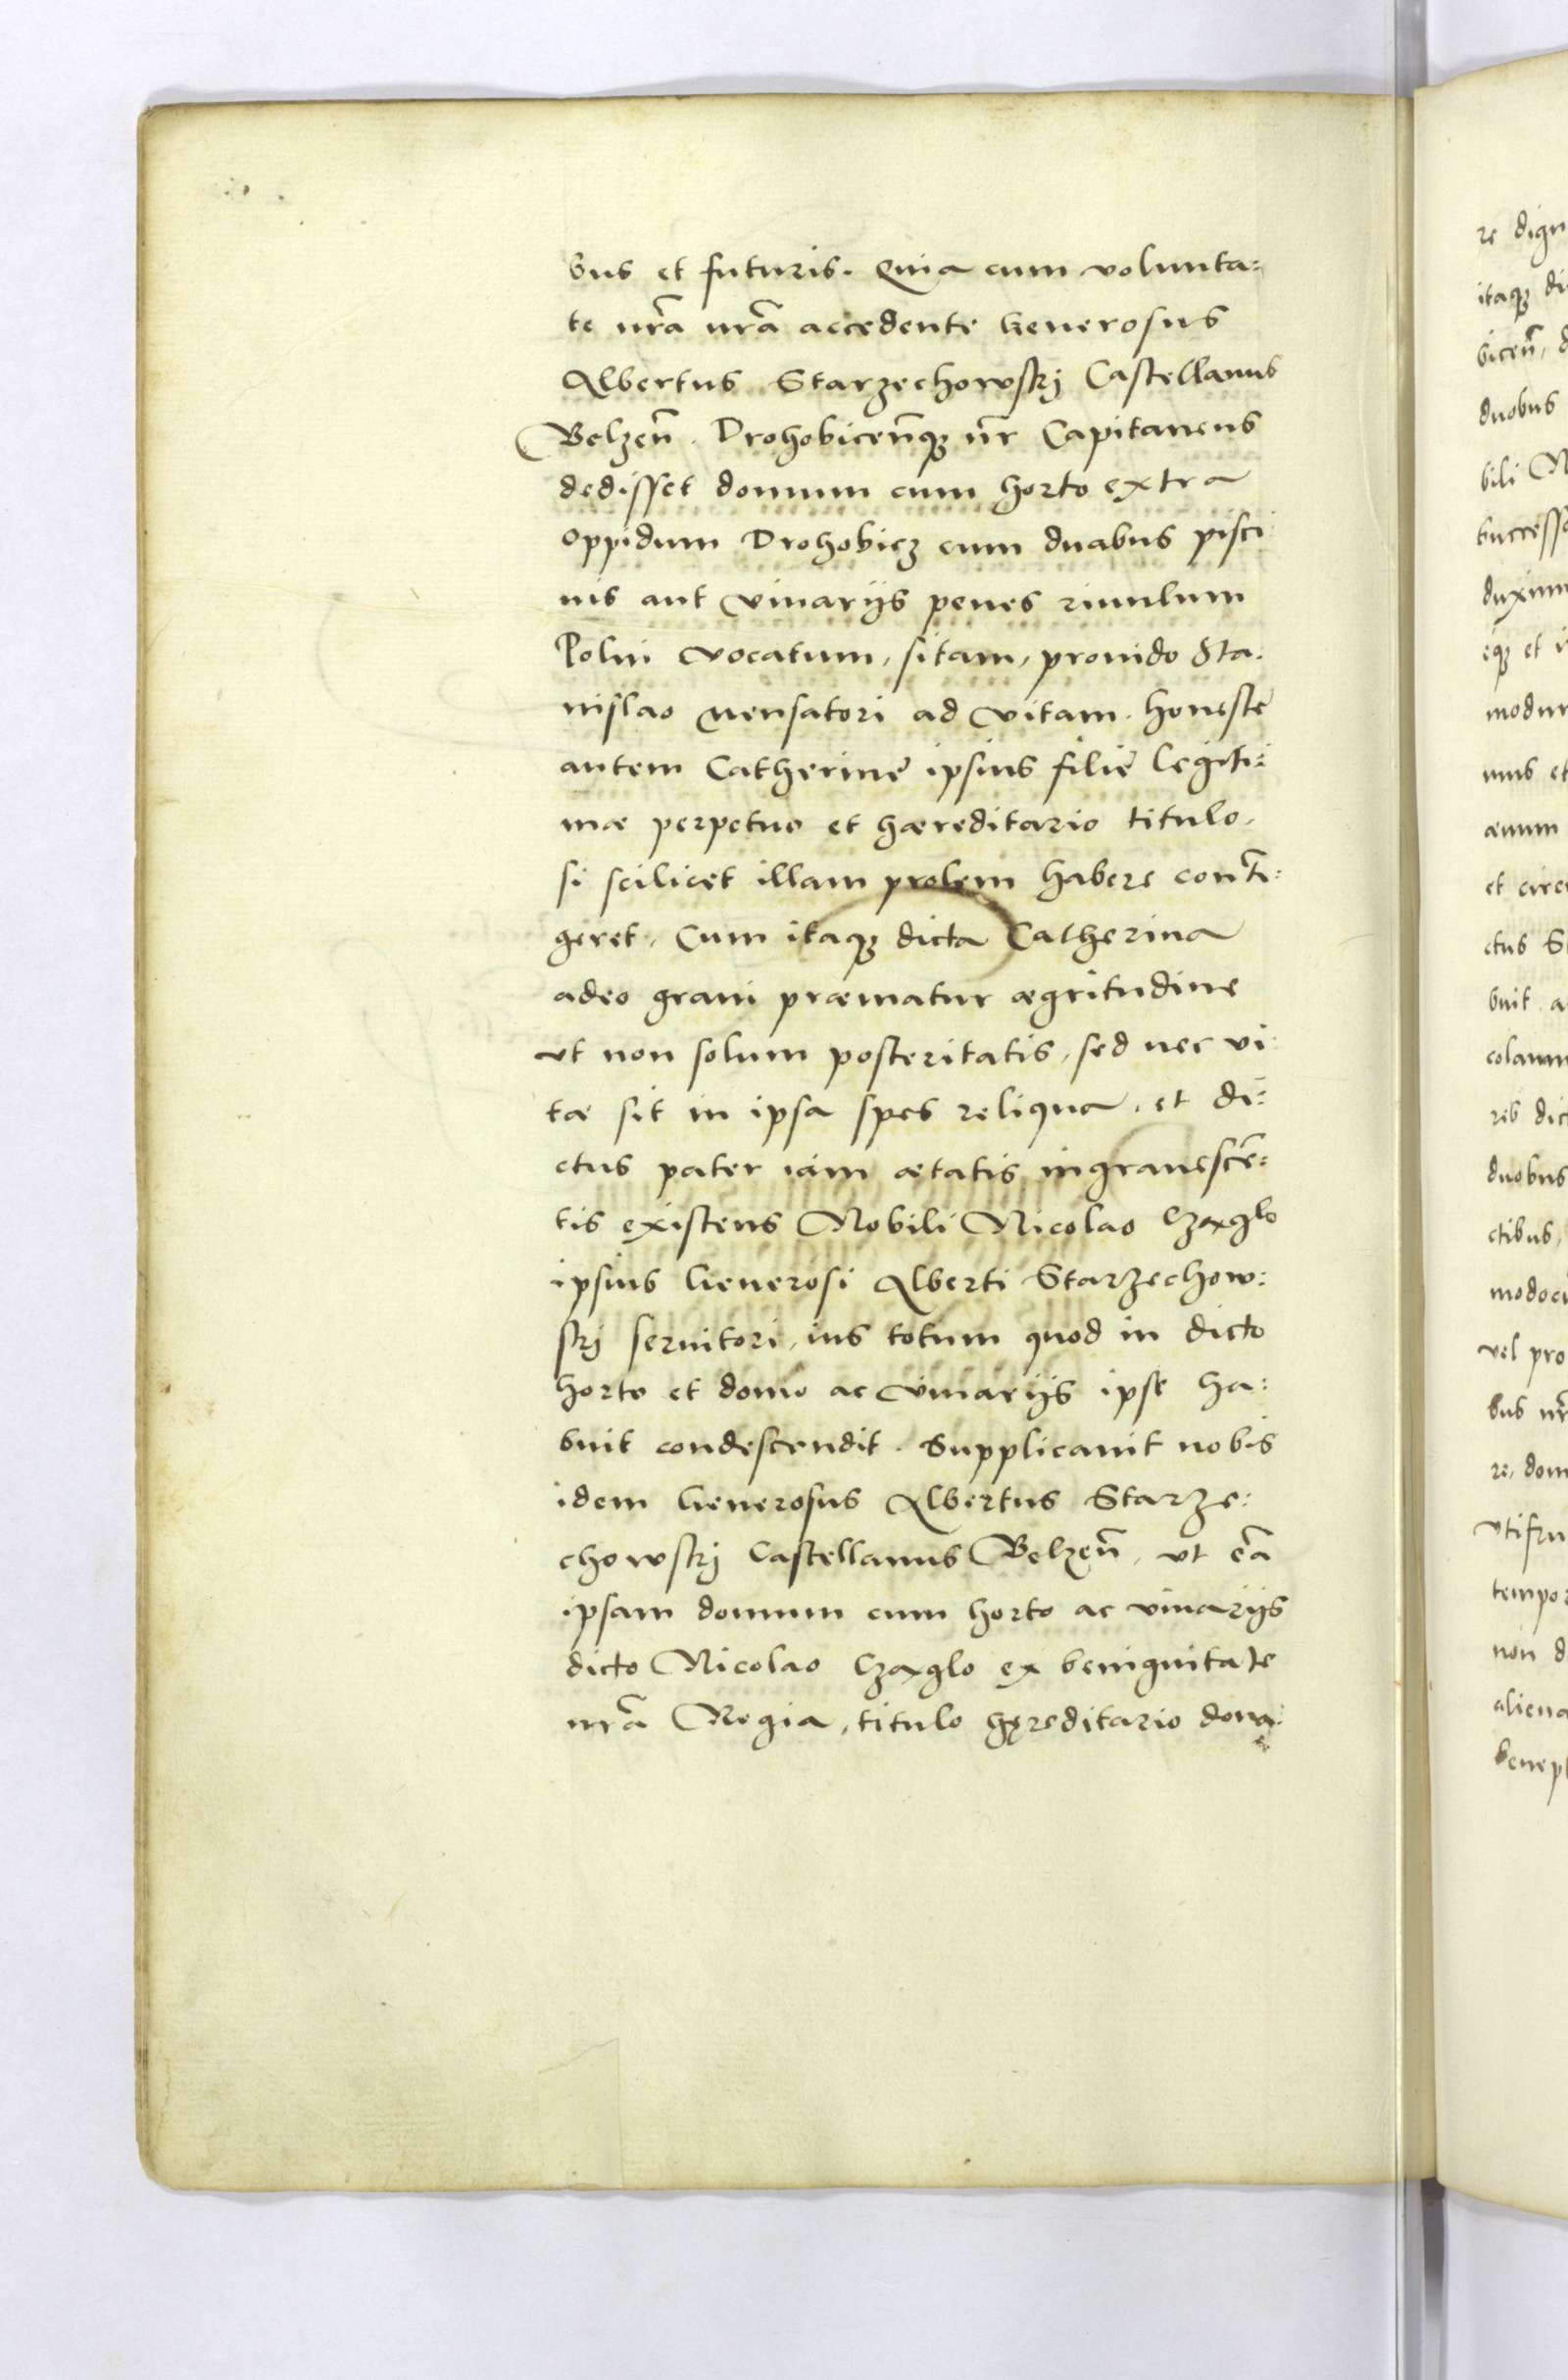 bus et futuris. Quia cum volunta:
te nr̃a nr̃a accedente Generosus
Albertus Starzechowskj Castellanus
Belzeñ. Drohobiceñq₃ nr̃ Capitaneus
dedisset domum cum horto extra
oppidum Drohobicz cum duabus pisci
nis aut vivariis penes riuulum
Polni vocatum, sitam, prouido Sta:
nislao mensatori ad vitam. honestę
autem Catherinę ipsius filię legiti:
mæ perpetuo et hæreditario titulo,
si scilicet illam prolem habere conti:
geret. Cum itaq₃ dicta Catherina
adeo graui præmatur ægritudine
vt non solum posteritatis, sed nec vi:
tæ sit in ipsa spes reliqua, et di:
ctus pater iam ætatis ingrauescẽ:
tis existens Nobili Nicolao Czaglo
ipsius Generosi Alberti Starzechow:
skj seruitori, ius totum quod in dicto
horto et domo ac viuariis ipse ha:
buit condescendit. Supplicauit nobis
idem Generosus Albertus Starze:
chowskj Castellanus Belzeñ, vt eã
ipsam domum cum horto ac viuariis
dicto Nicolao Czaglo ex benignitate
nr̃a Regia, titulo hęreditario dona:
re dign
itaq₃ di
biceñ, d
duobus
bili N
successo
duxim
eq₃ et i
modum
nus et
æuum
et circ
ctus S
buit a
colaum
res dic
duobus
ctibus,
modoc
vel pro
bus nr
re, dom
vtifru
tempor
non d
aliena
benepl